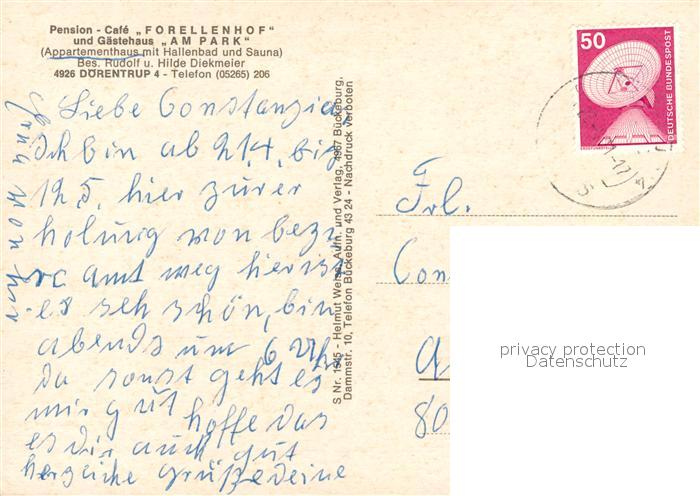 Pension - Café „FORELLENHOF"
und Gästehaus „AM PARK"
(Appartementhaus mit Hallenbad und Sauna)
Bes. Rudolf u. Hilde Diekmeier
4926 DÖRENTRUP 4 - Telefon (05265) 206
Liebe Constanzia
Ich bin ab 21.4. bis
12.5. hier zur er
holung von bezi
rc amt weg hier ist
es seh schön, bin
abends um 6 Uhr
da sonst geht es
mir gut hoffe das
es dir auch gut
herzliche grüße deine
S Nr. 1945 - Helmut Weise, Aufn. und Verlag, 4967 Bückeburg,
Dammstr. 10, Telefon Bückeburg 43 24 - Nachdruck verboten
50
DEUTSCHE BUNDESPOST
Frl.
Con
80
privacy protection
Datenschutz